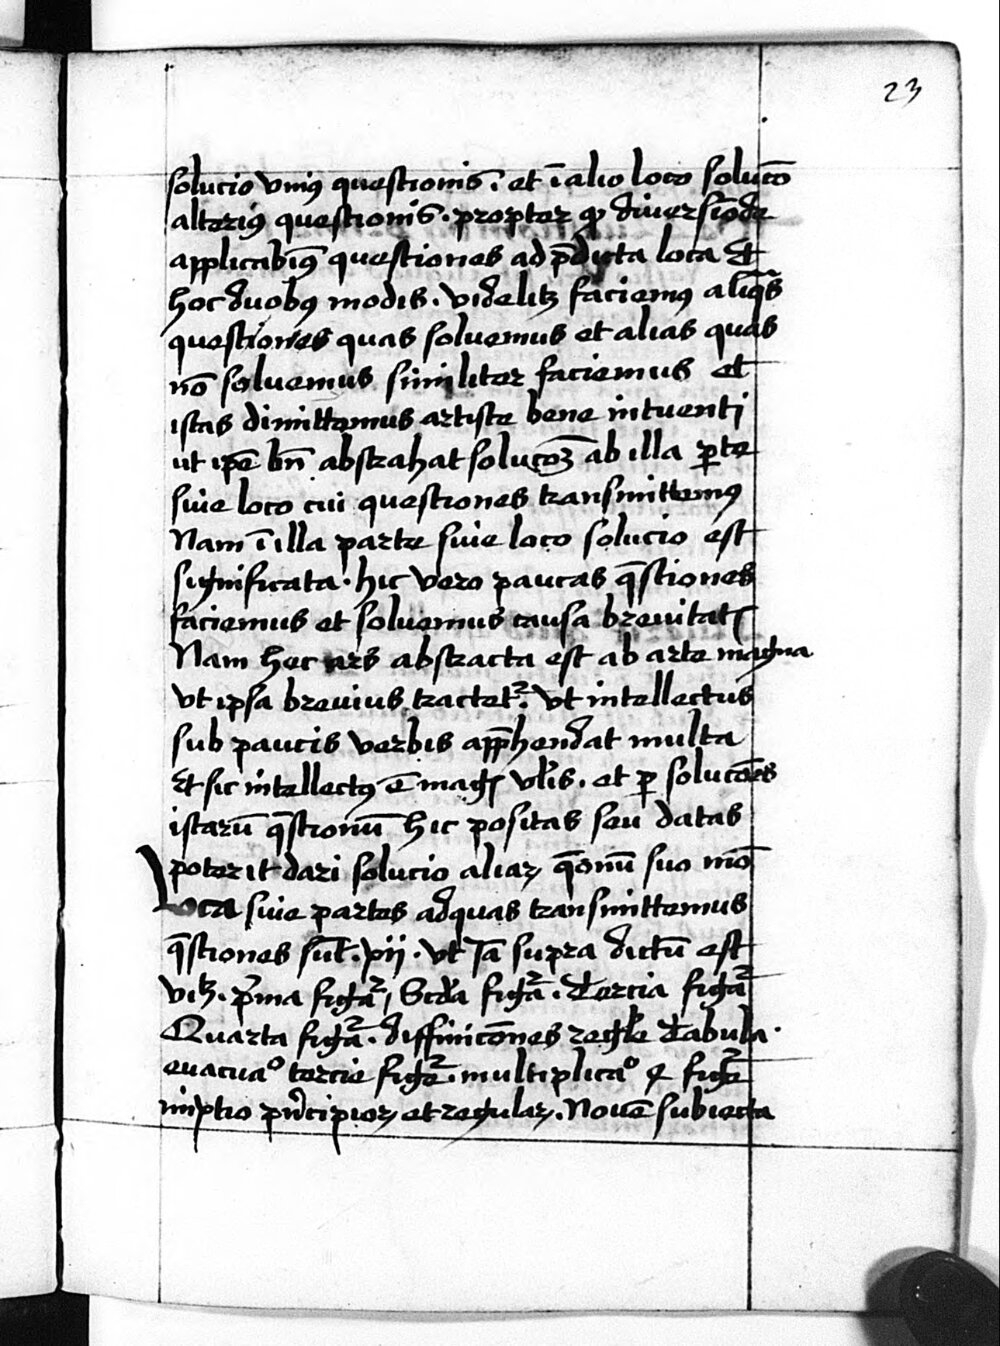 23
solucio vniꝰ questionis. et ī alio loco solucō
alteriꝰ questionis. propter qđ diuersimode
applicabimꝰ questiones ad p̄dicta loca Et
hoc duobꝰ modis. videlitꝫ faciemꝰ aliq̄s
questiones quas soluemus et alias quas
nō soluemus similiter faciemus et
istas dimittemus artiste bene intuenti
ut ip̄e bn̄ abstrahat solucōꝫ ab illa ꝑte
siue loco cui questiones transmittemꝰ
Nam ī illa parte siue loco solucio est
significata. hic vero paucas q̄stiones
faciemus et soluemus causa breuitatꝭ
Nam hec ars abstracta est ab arte magna
vt ipsa breuius tractet᷑. vt intellectus
sub paucis verbis app̄hendat multa
Et sic intellectꝰ ē magꝭ vl̄is. et ꝑ soluciōes
istarū q̄stionū hic positas seu datas
poterit dari solucio aliaꝝ q̄onū suo mō
Loca siue partes ad quas transmittemus
q̄stiones sūt. xij. vt Jā supra dictū est
vitꝫ. p̄ma figa᷑, Scd̄a figa᷑. Tercia figa᷑
Quarta figa᷑. diffinicōnes regl̄e Tabula.
euacuaº tercie fige᷑. multiplicaº 4 fige᷑
mixtio pͥncipioꝝ et regulaꝝ. Nouē subiecta